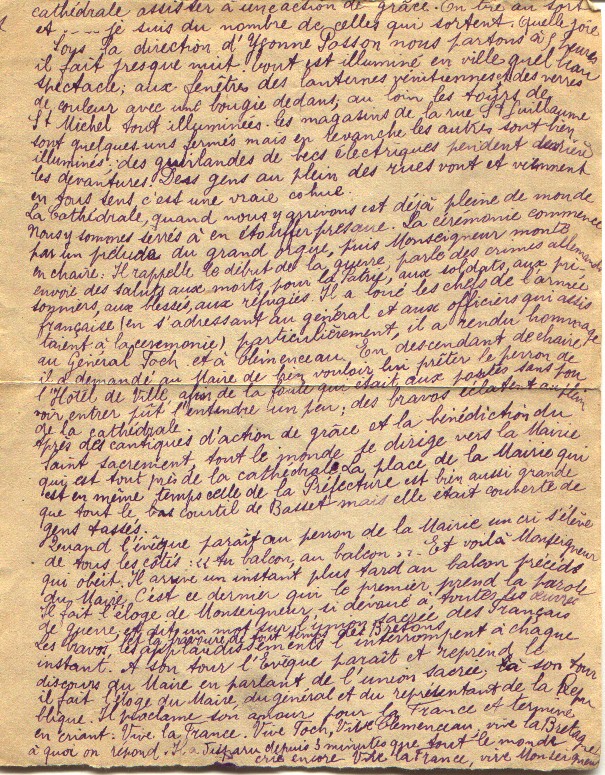 cathédrale assister à une action de grâce. On tire au sort
et ---- je suis du nombre de celles qui sortent. Quelle joie
Sous la direction d'Yvonne Passon nous partons à 5 heures
il fait presque nuit. tout est illuminé en ville quel beau
spectacle; aux fenêtres des lanternes vénitiennes, des verres
de couleur avec une bougie dedans; au loin les tours de
St Michel sont illuminées. les magasins de la rue St Guillaume
sont quelques uns fermés mais en revanche les autres sont bien
illuminés: des guirlandes de becs électriques pendent derrière
les devantures. Des gens au plein des rues vont et viennent
en tous sens, c'est une vraie cohue.
La Cathédrale, quand nous y arrivons est déjà pleine de monde
Nous y sommes serrés à en étouffer presque. La cérémonie commence
par un prélude du grand orgue, puis Monseigneur monte
en chaire: Il rappelle le début de la guerre, parle des crimes allemands
envoie des saluts aux morts pour la Patrie, aux soldats, aux pri-
sonniers, aux blessés, aux réfugiés. Il a loué les chefs de l'armée
française (en s'adressant au général et aux officiers qui assis
taient à la cérémonie) particulièrement, il a rendu hommage
au Général Foch et à Clémenceau. En descendant de chaire,
il a demandé au Maire de bien vouloir lui prêter le perron de
l'Hôtel de Ville afin de la foule qui était aux portes sans pou
voir entrer pût l'entendre un peu; des bravos éclatent au plein
de la cathédrale.
Après des cantiques d'action de grâce et la bénédiction du
Saint sacrement, tout le monde se dirige vers la Mairie
qui est tout près de la cathédrale. La place de la Mairie qui
est en même temps celle de la Préfecture est bien aussi grande
que tout le bas courtil de Basset mais elle était couverte de
gens tassés.
Quand l'évêque paraît au perron de la Mairie un cri s'élève
de tous les côtés: "Au balcon, au balcon". Et voilà Monseigneur
qui obéit. Il arrive un instant plus tard au balcon précédé
du Maire. C'est ce dernier qui le premier prend la parole
Il fait l'éloge de Monseigneur, si dévoué à toutes les œuvres
de Guerre, et dit un mot sur l'union sacrée des Français
et la bravoure de tout temps des Bretons
Les bravos, les applaudissements l'interrompent à chaque
instant. A son tour l'Evêque paraît et reprend le
discours du Maire en parlant de l'union sacrée; à son tour
il fait l'éloge du Maire, du général et du représentant de la Répu
blique. Il proclame son amour pour la France et termine
en criant: Vive la France. Vive Foch, Vive Clemenceau, vive la Bretagne
à quoi on répond. Il a disparu depuis 5 minutes que tout le monde
crie encore Vive la France, vive Monseigneur